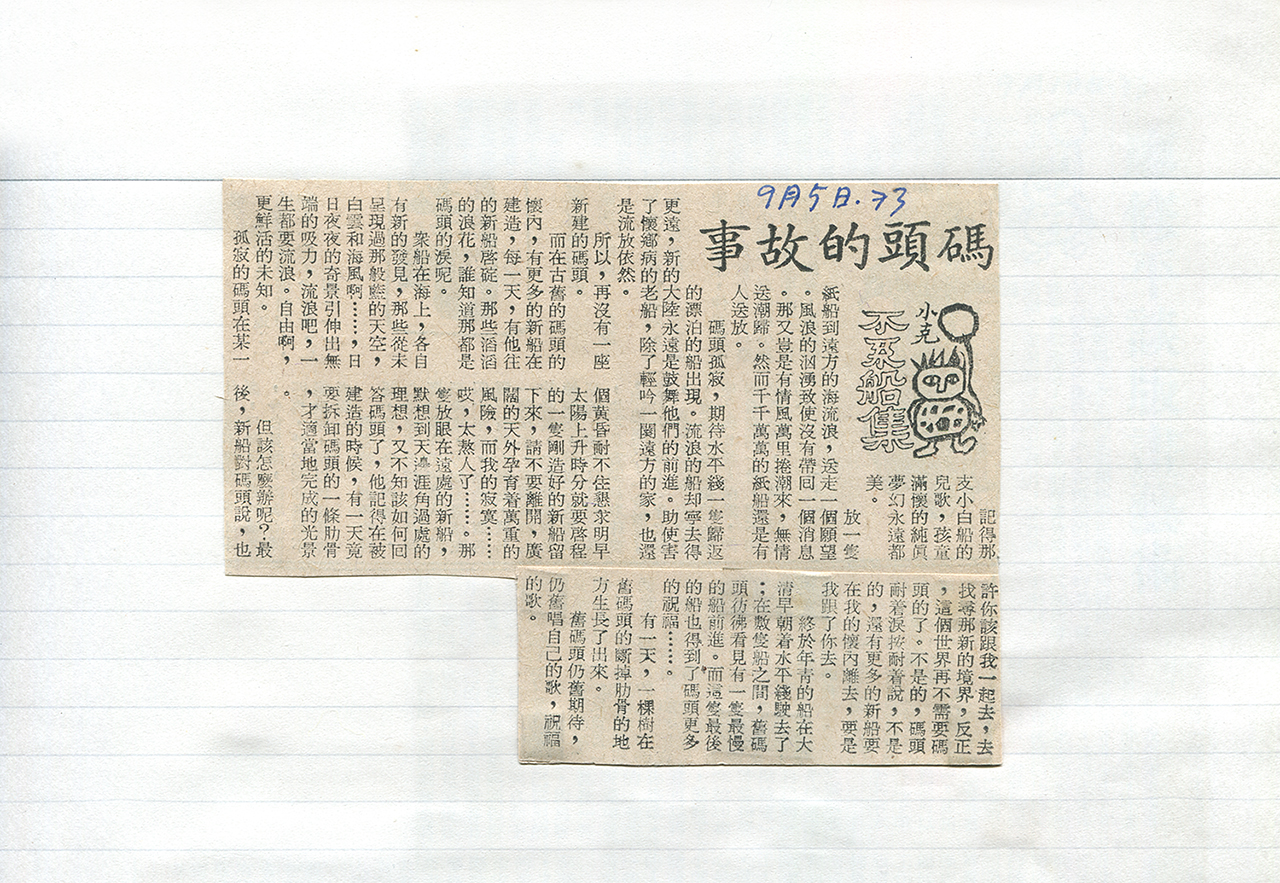 9月5日.73
碼頭的故事
小克
不系船集
記得那
支小白船的
兒歌，孩童
滿懷的純眞
夢幻永遠都
美。
放一隻
紙船到遠方的海流浪，送走一個願望
。風浪的汹湧致使沒有帶回一個消息
。那又豈是有情風萬里捲潮來，無情
送潮歸。然而千千萬萬的紙船還是有
人送放。
碼頭孤寂，期待水平綫一隻歸返
的漂泊的船出現。流浪的船却寧去得
更遠，新的大陸永遠是鼓舞他們的前進。助使害
了懷鄉病的老船，除了輕吟一闋遠方的家，也還
是流放依然。
所以，再沒有一座
新建的碼頭。
而在古舊的碼頭的
懷內，有更多的新船在
建造，每一天，有他往
的新船啓碇。那些滔滔
的浪花，誰知道那都是
碼頭的淚呢。
衆船在海上，各自
有新的發見，那些從未
呈現過那般藍的天空，
白雲和海風啊……，日
日夜夜的奇景引伸出無
端的吸力，流浪吧，一
生都要流浪。自由啊，
更鮮活的未知。
孤寂的碼頭在某一
個黃昏耐不住懇求明早
太陽上升時分就要啓程
的一隻剛造好的新船留
下來，請不要離開，廣
闊的天外孕育着萬重的
風險，而我的寂寞……
哎，太熬人了……。那
隻放眼在遠處的新船，
默想到天涯涯角過處的
理想，又不知該如何回
答碼頭了，他記得在被
建造的時候，有一天竟
要拆卸碼頭的一條肋骨
，才適當地完成的光景
。
但該怎麼辦呢？最
後，新船對碼頭說，也
許你該跟我一起去，去
找尋那新的境界，反正
，這個世界再不需要碼
頭的了。不是的，碼頭
耐着淚按耐着說，不是
的，還有更多的新船要
在我的懷內離去，要是
我跟了你去。
終於年靑的船在大
淸早朝着水平綫駛去了
；在數隻船之間，舊碼
頭彷彿看見有一隻最慢
的船前進。而這隻最後
的船也得到了碼頭更多
的祝福……。
有一天，一棵樹在
舊碼頭的斷掉肋骨的地
方生長了出來。
舊碼頭仍舊期待，
仍舊唱自己的歌，祝福
的歌。